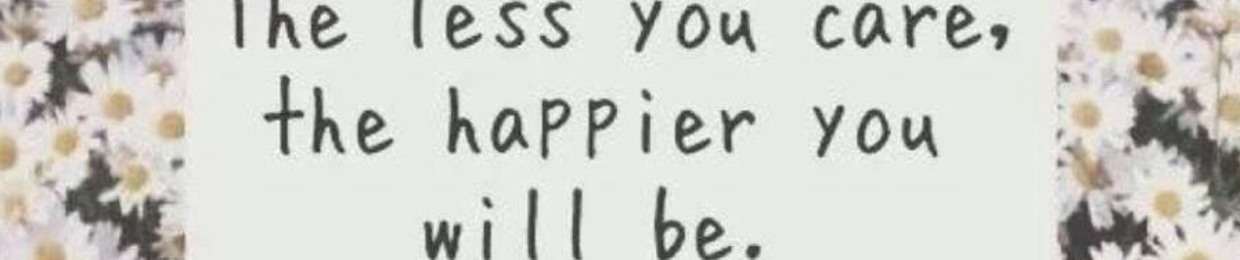 The less you care,
the happier you
will be.